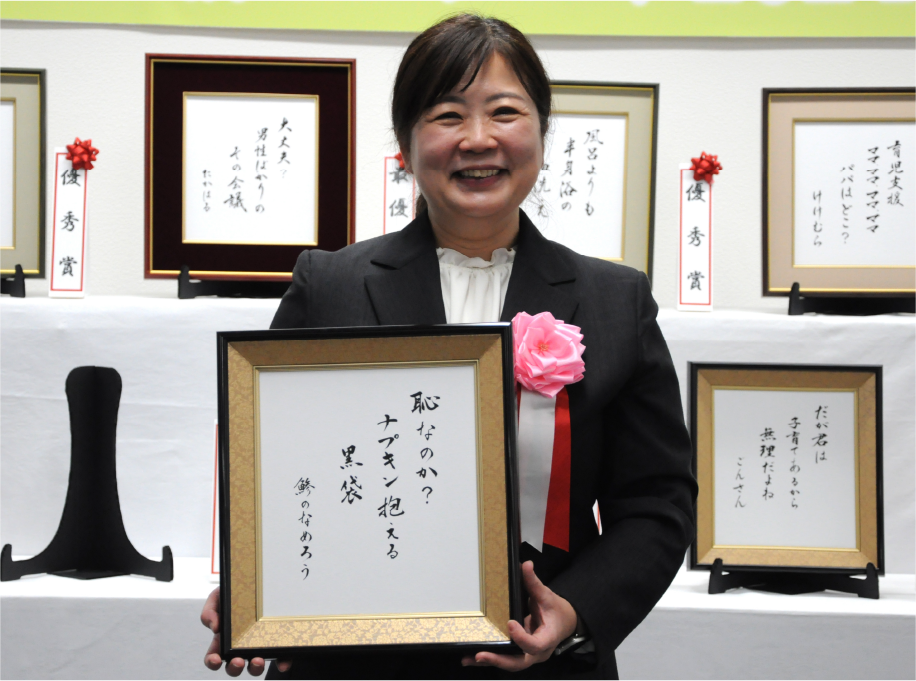 優秀賞
大丈夫？
男性ばかりの
その会議
たかはる
最優
風呂よりも
半身浴の
優秀賞
育児支援
ママママママ
パパはどこ？
けけむら
恥なのか？
ナプキン抱える
黒袋
鯵のなめろう
だが君は
子育てあるから
無理だよね
こんさん